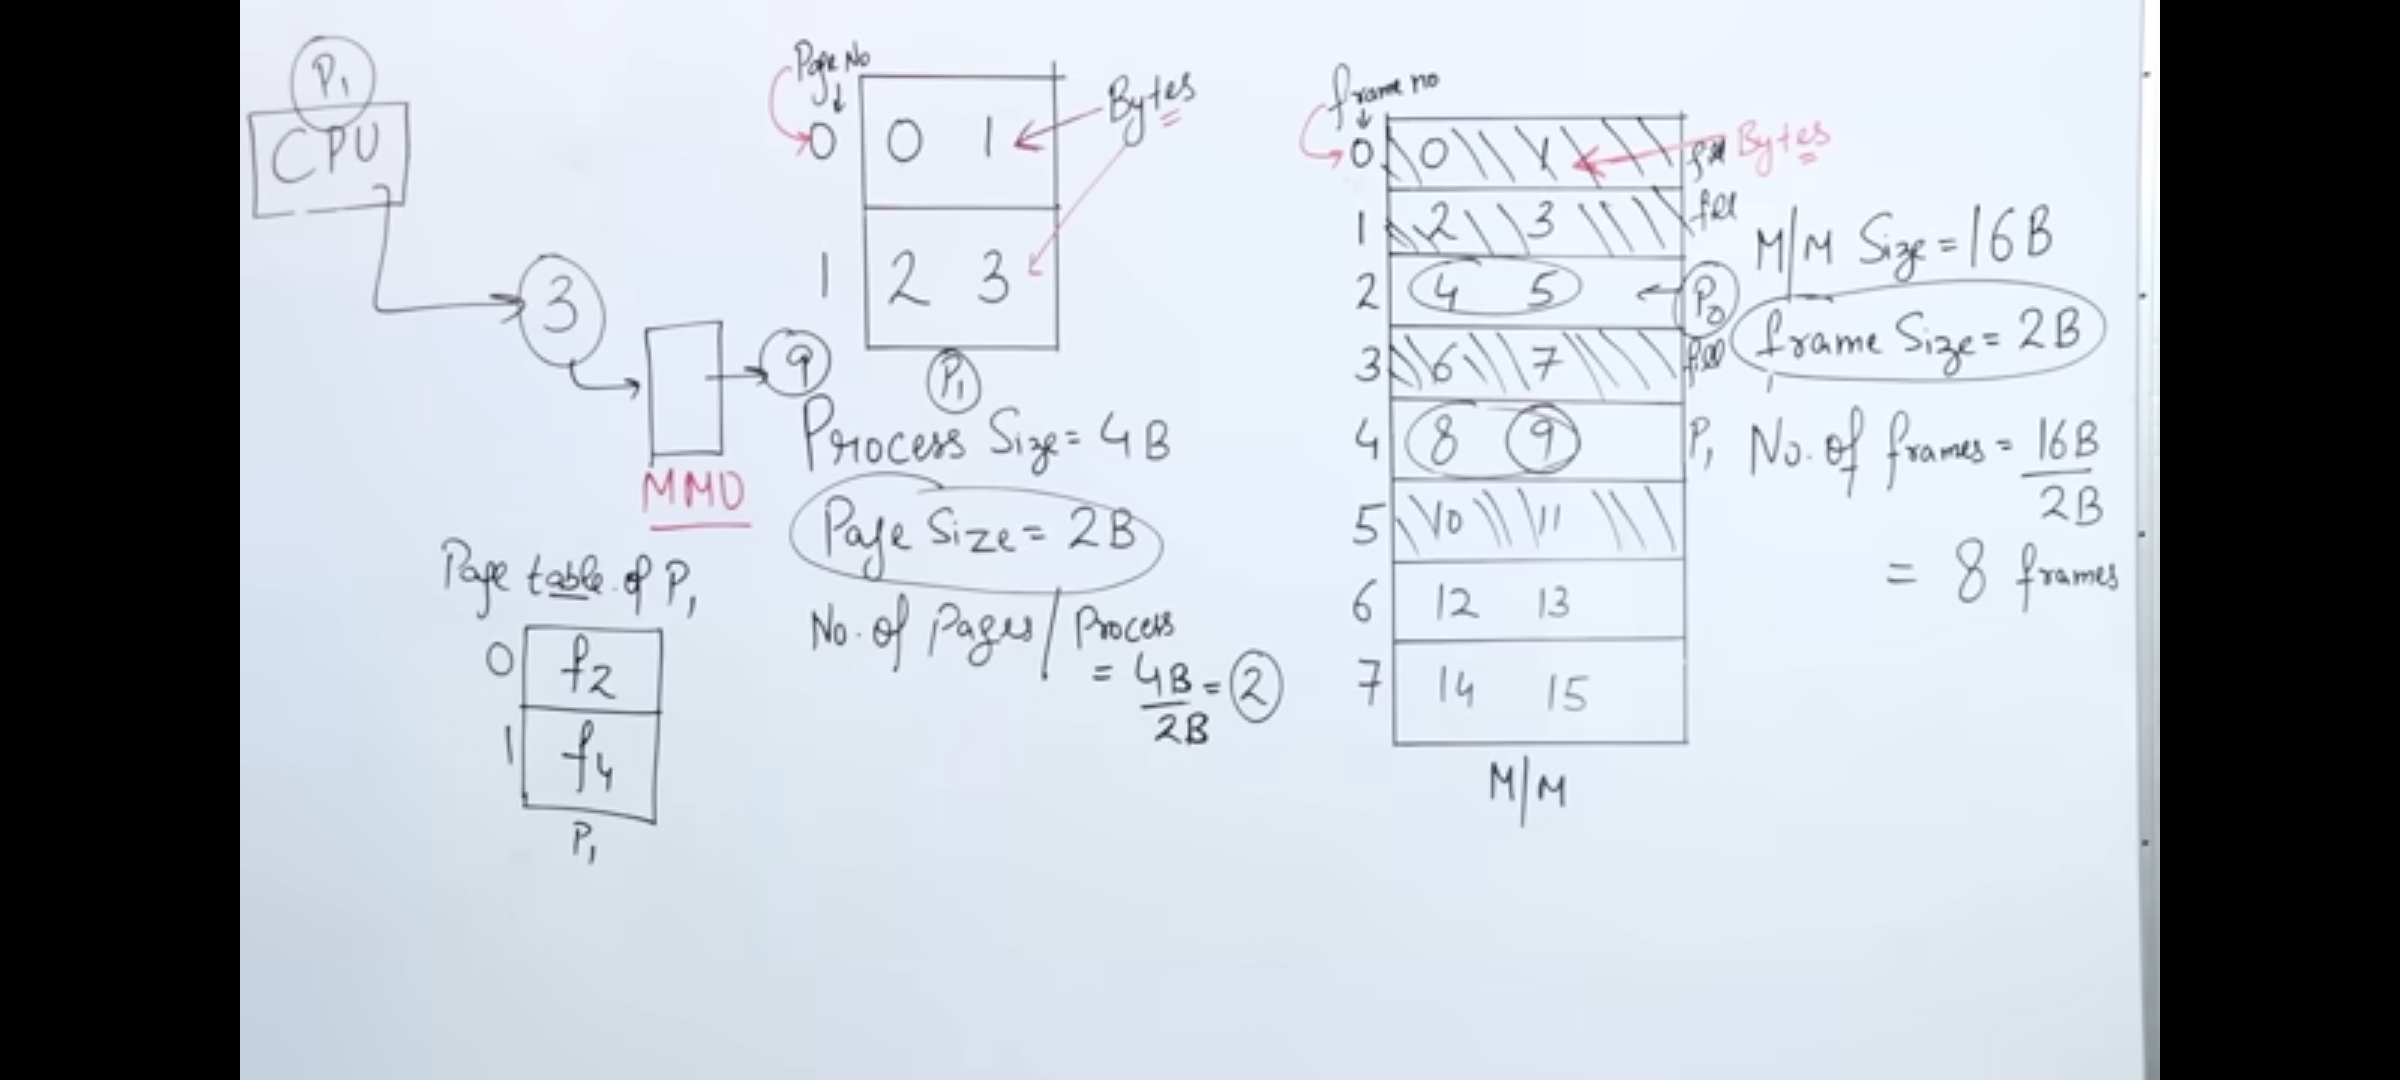 P1
CPU
3
MMU
9
Page No
0 0 1
1 2 3
Bytes
P1
Process Size = 4B
Page Size = 2B
No. of Pages / Process
= 4B/2B = 2
Page table of P1
0 f2
1 f4
P1
frame no
0 0 1 fill
Bytes
1 2 3 fill
2 4 5 P0
3 6 7 fill
4 8 9 P1
5 10 11
6 12 13
7 14 15
M/M
M/M Size = 16B
frame Size = 2B
No. of frames = 16B/2B
= 8 frames